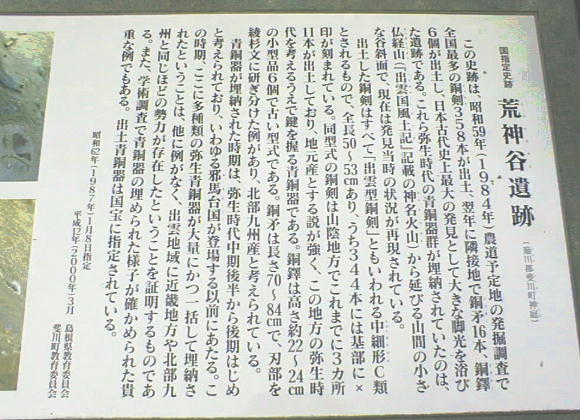 国指定史跡 荒神谷遺跡 (簸川郡斐川町神庭)
この史跡は、昭和59年(1984年)農道予定地の発掘調査で
全国最多の銅剣358本が出土し、翌年に隣接地で銅矛16本、銅鐸
6個が出土し、日本古代史上最大の発見として大きな脚光を浴び
た遺跡である。これら弥生時代の青銅器群が埋納されていたのは、
仏経山(「出雲国風土記」記載の神名火山)から延びる山間の小さ
な谷斜面で、現在は発見当時の状況が再現されている。
出土した銅剣はすべて「出雲型銅剣」ともいわれる中細形C類
とされるもので、全長50〜53㎝あり、うち344本には基部に×
印が刻まれている。同型式の銅剣は山陰地方でこれまでに3カ所
11本が出土しており、地元産とする説が強く、この地方の弥生時
代を考えるうえで鍵を握る青銅器である。銅鐸は高さ約22〜24㎝
の小型品6個で古い型式である。銅矛は長さ70〜84㎝で、刃部を
綾杉文に研ぎ分けた例があり、北部九州産と考えられている。
青銅器が埋納された時期は、弥生時代中期後半から後期はじめ
と考えられており、いわゆる邪馬台国が登場する以前にあたる。こ
の時期、ここに多種類の弥生青銅器が大量にかつ一括して埋納さ
れたということは、他に例がなく、出雲地域に近畿地方や北部九
州と同じほどの勢力が存在したということを証明するものであ
る。また、学術調査で青銅器の埋められた様子が確かめられた貴
重な例でもある。出土青銅器は国宝に指定されている。
昭和62年(1987年)1月8日指定
平成12年(2000年)3月
島根県教育委員会
斐川町教育委員会